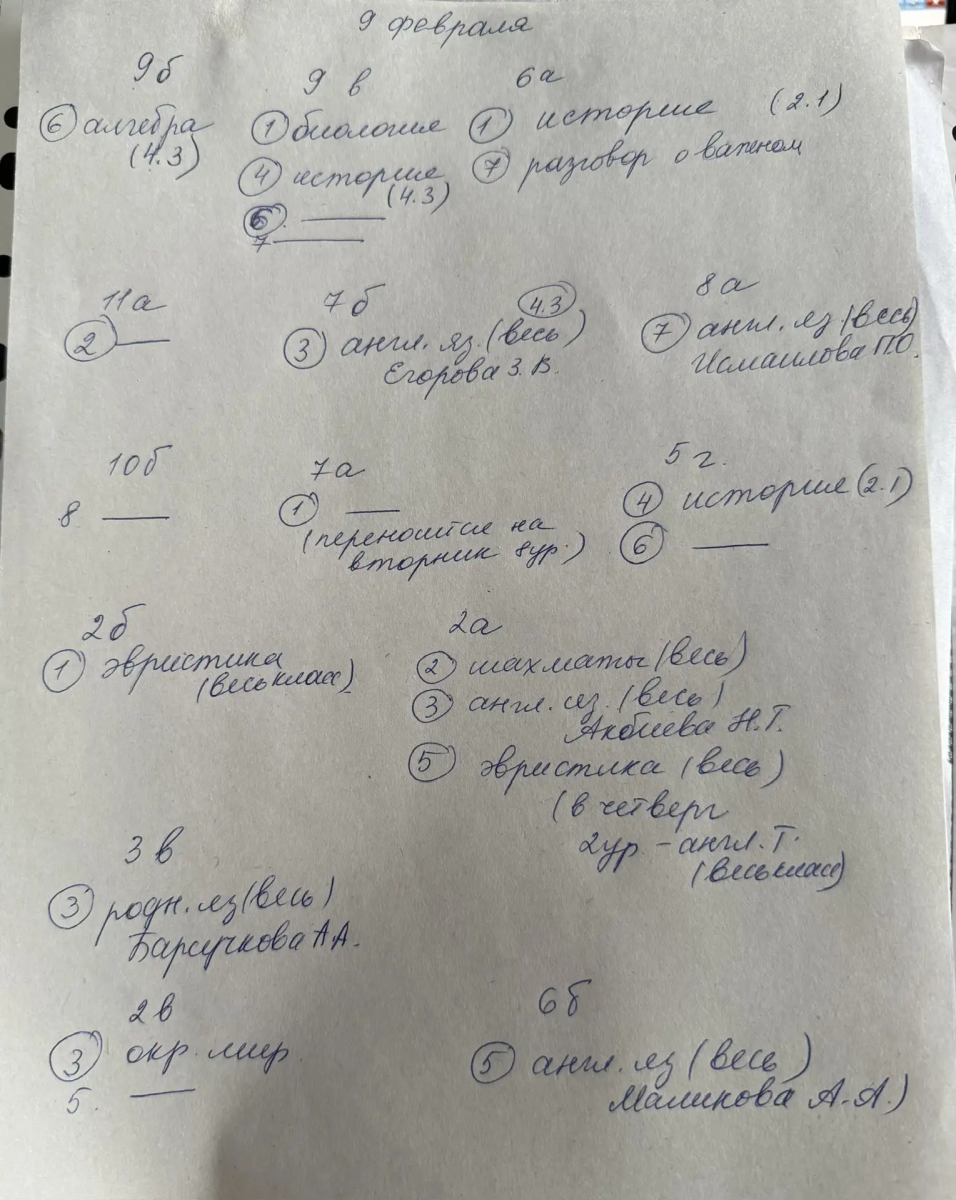 9 февраля
9б
⑥ алгебра
(4.3)
9 в
① биология
④ история
(4.3)
⑥. ——
7 ——
6а
① история (2.1)
⑦ разговор о важном
11а
② ——
7б
4.3
③ англ. яз. (весь)
Егорова З. В.
8а
⑦ англ. яз (весь)
Исмаилова П.О.
10б
8 ——
7а
① ——
(переносится на
вторник 8ур.)
5 г.
④ история (2.1)
⑥ ——
2б
① эвристика
(весь класс)
2а
② шахматы (весь)
③ англ. яз. (весь)
Акбиева Н.Т.
⑤ эвристика (весь)
(в четверг
2ур – англ. Т.
(весь класс)
3в
③ родн. яз (весь)
Барсучкова А А.
2в
③ окр. мир
5. ——
6б
⑤ англ. яз (весь)
Маликова А.А.)